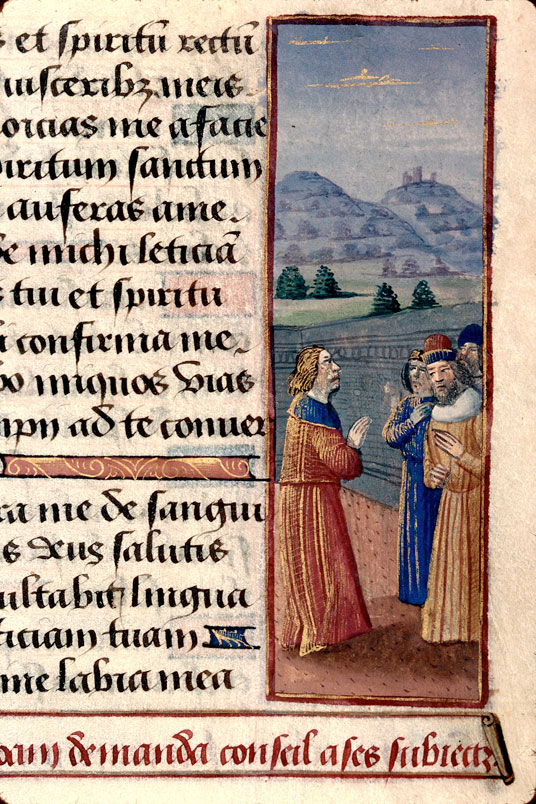 s et spiritū rectū
uisceribz meis
oicias me a facie
piritum sanctum
auferas a me
de michi leticiā
s tui et spiritu
confirma me
bo iniquos vias
impii ad te conuer
ra me de sangui
s deus salutis
ultabit lingua
ticiam tuam
me labia mea
oam demanda conseil a ses subiectz